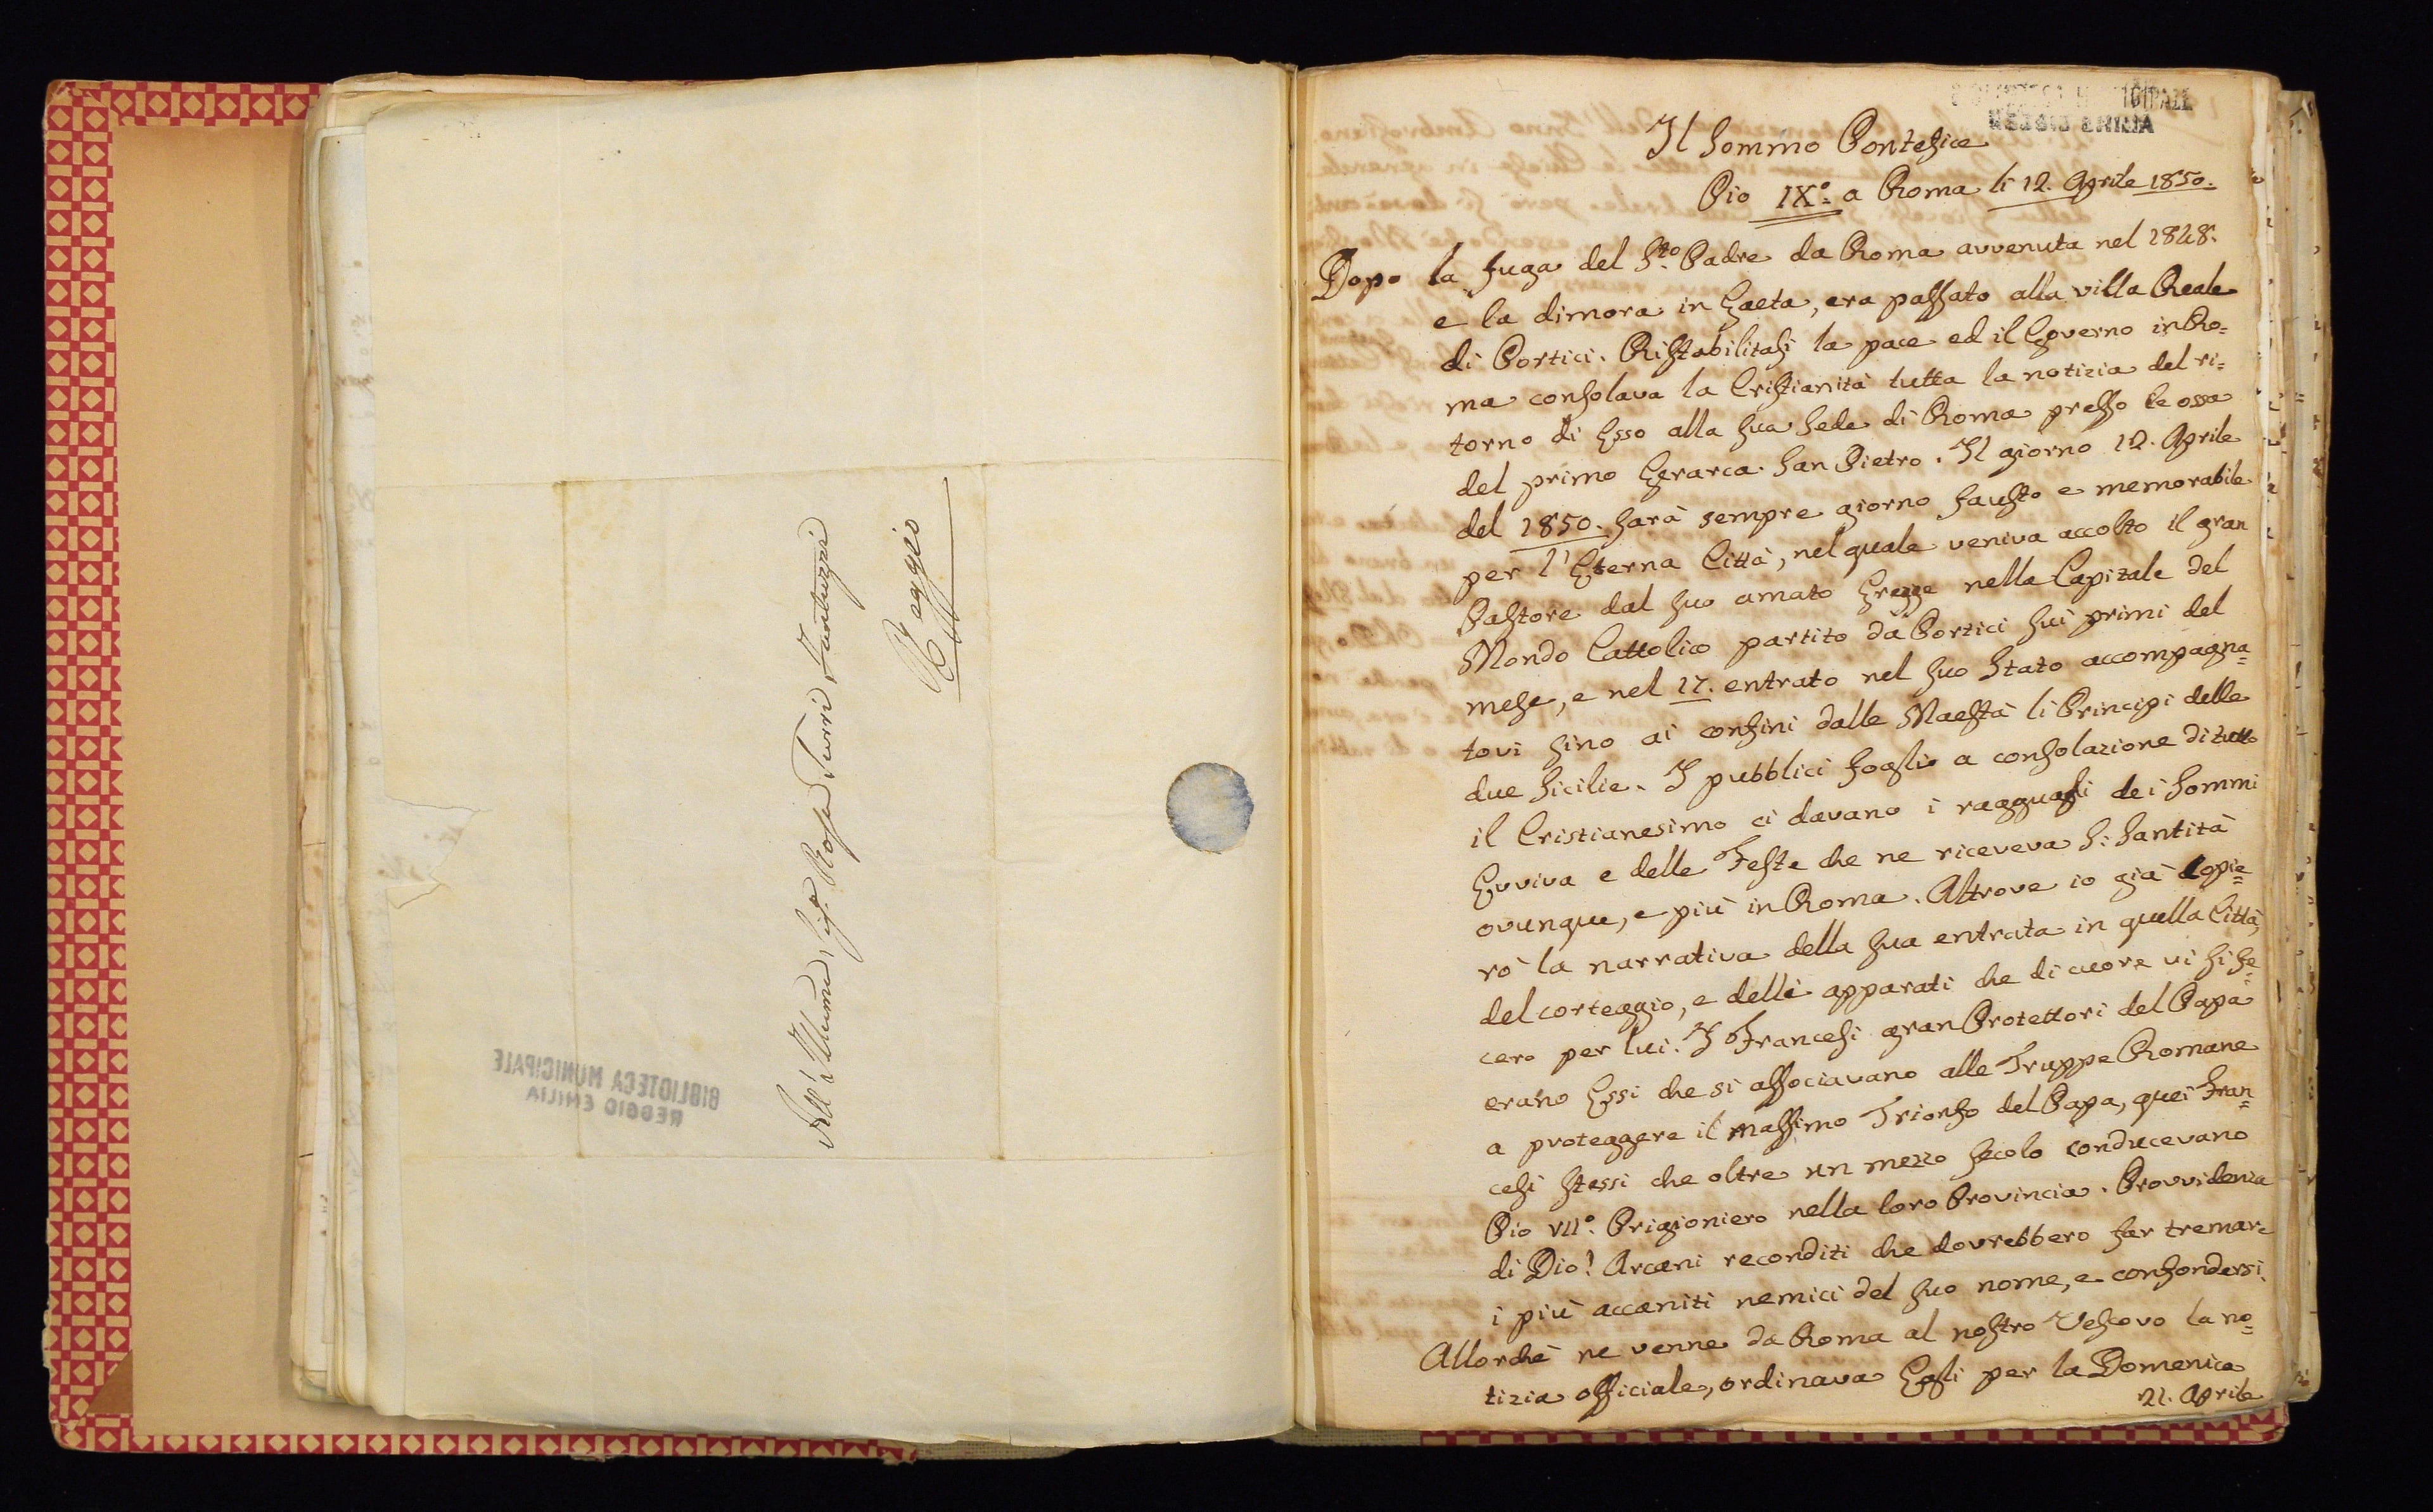 All' Illuma Sigra Rosa Turri Fantuzzi
Reggio
BIBLIOTECA MUNICIPALE
REGGIO EMILIA
REGGIO EMILIA
Il Sommo Pontefice
Pio IX° a Roma li 12. Aprile 1850.
Dopo la fuga del Sto Padre da Roma avvenuta nel 1848.
e la dimora in Gaeta, era passato alla villa Reale
di Portici. Ristabilitasi la pace ed il Governo in Ro=
ma consolava la Cristianità tutta la notizia del ri=
torno di Esso alla sua Sede di Roma presso le ossa
del primo Gerarca San Pietro. Il giorno 12. Aprile
del 1850. sarà sempre giorno fausto e memorabile
per l'Eterna Città, nel quale veniva accolto il gran
Pastore dal suo amato Gregge nella Capitale del
Mondo Cattolico partito da Portici sui primi del
mese, e nel 17. entrato nel suo Stato accompagna=
tovi sino ai confini dalle Maestà li Principi delle
due Sicilie. I pubblici foglio a consolazione di tutto
il Cristianesimo ci davano i ragguagli dei sommi
Evviva e delle Feste che ne riceveva S: Santità
ovunque, e più in Roma. Altrove io già copie=
rò la narrativa della sua entrata in quella Città,
del corteggio, e delli apparati che di cuore vi si fe=
cero per lui. I Francesi gran Protettori del Papa
erano Essi che si associavano alle Truppe Romane
a proteggere il massimo Trionfo del Papa, quei Fran=
cesi stessi che oltre un mezzo secolo conducevano
Pio VII°. Prigioniero nella loro Provincia. Provvidenza
di Dio! Arcani reconditi che dovrebbero far tremare
i più accaniti nemici del suo nome, e confondersi.
Allorchè ne venne da Roma al nostro Vescovo la no=
tizia officiale, ordinava Egli per la Domenica
21. Aprile